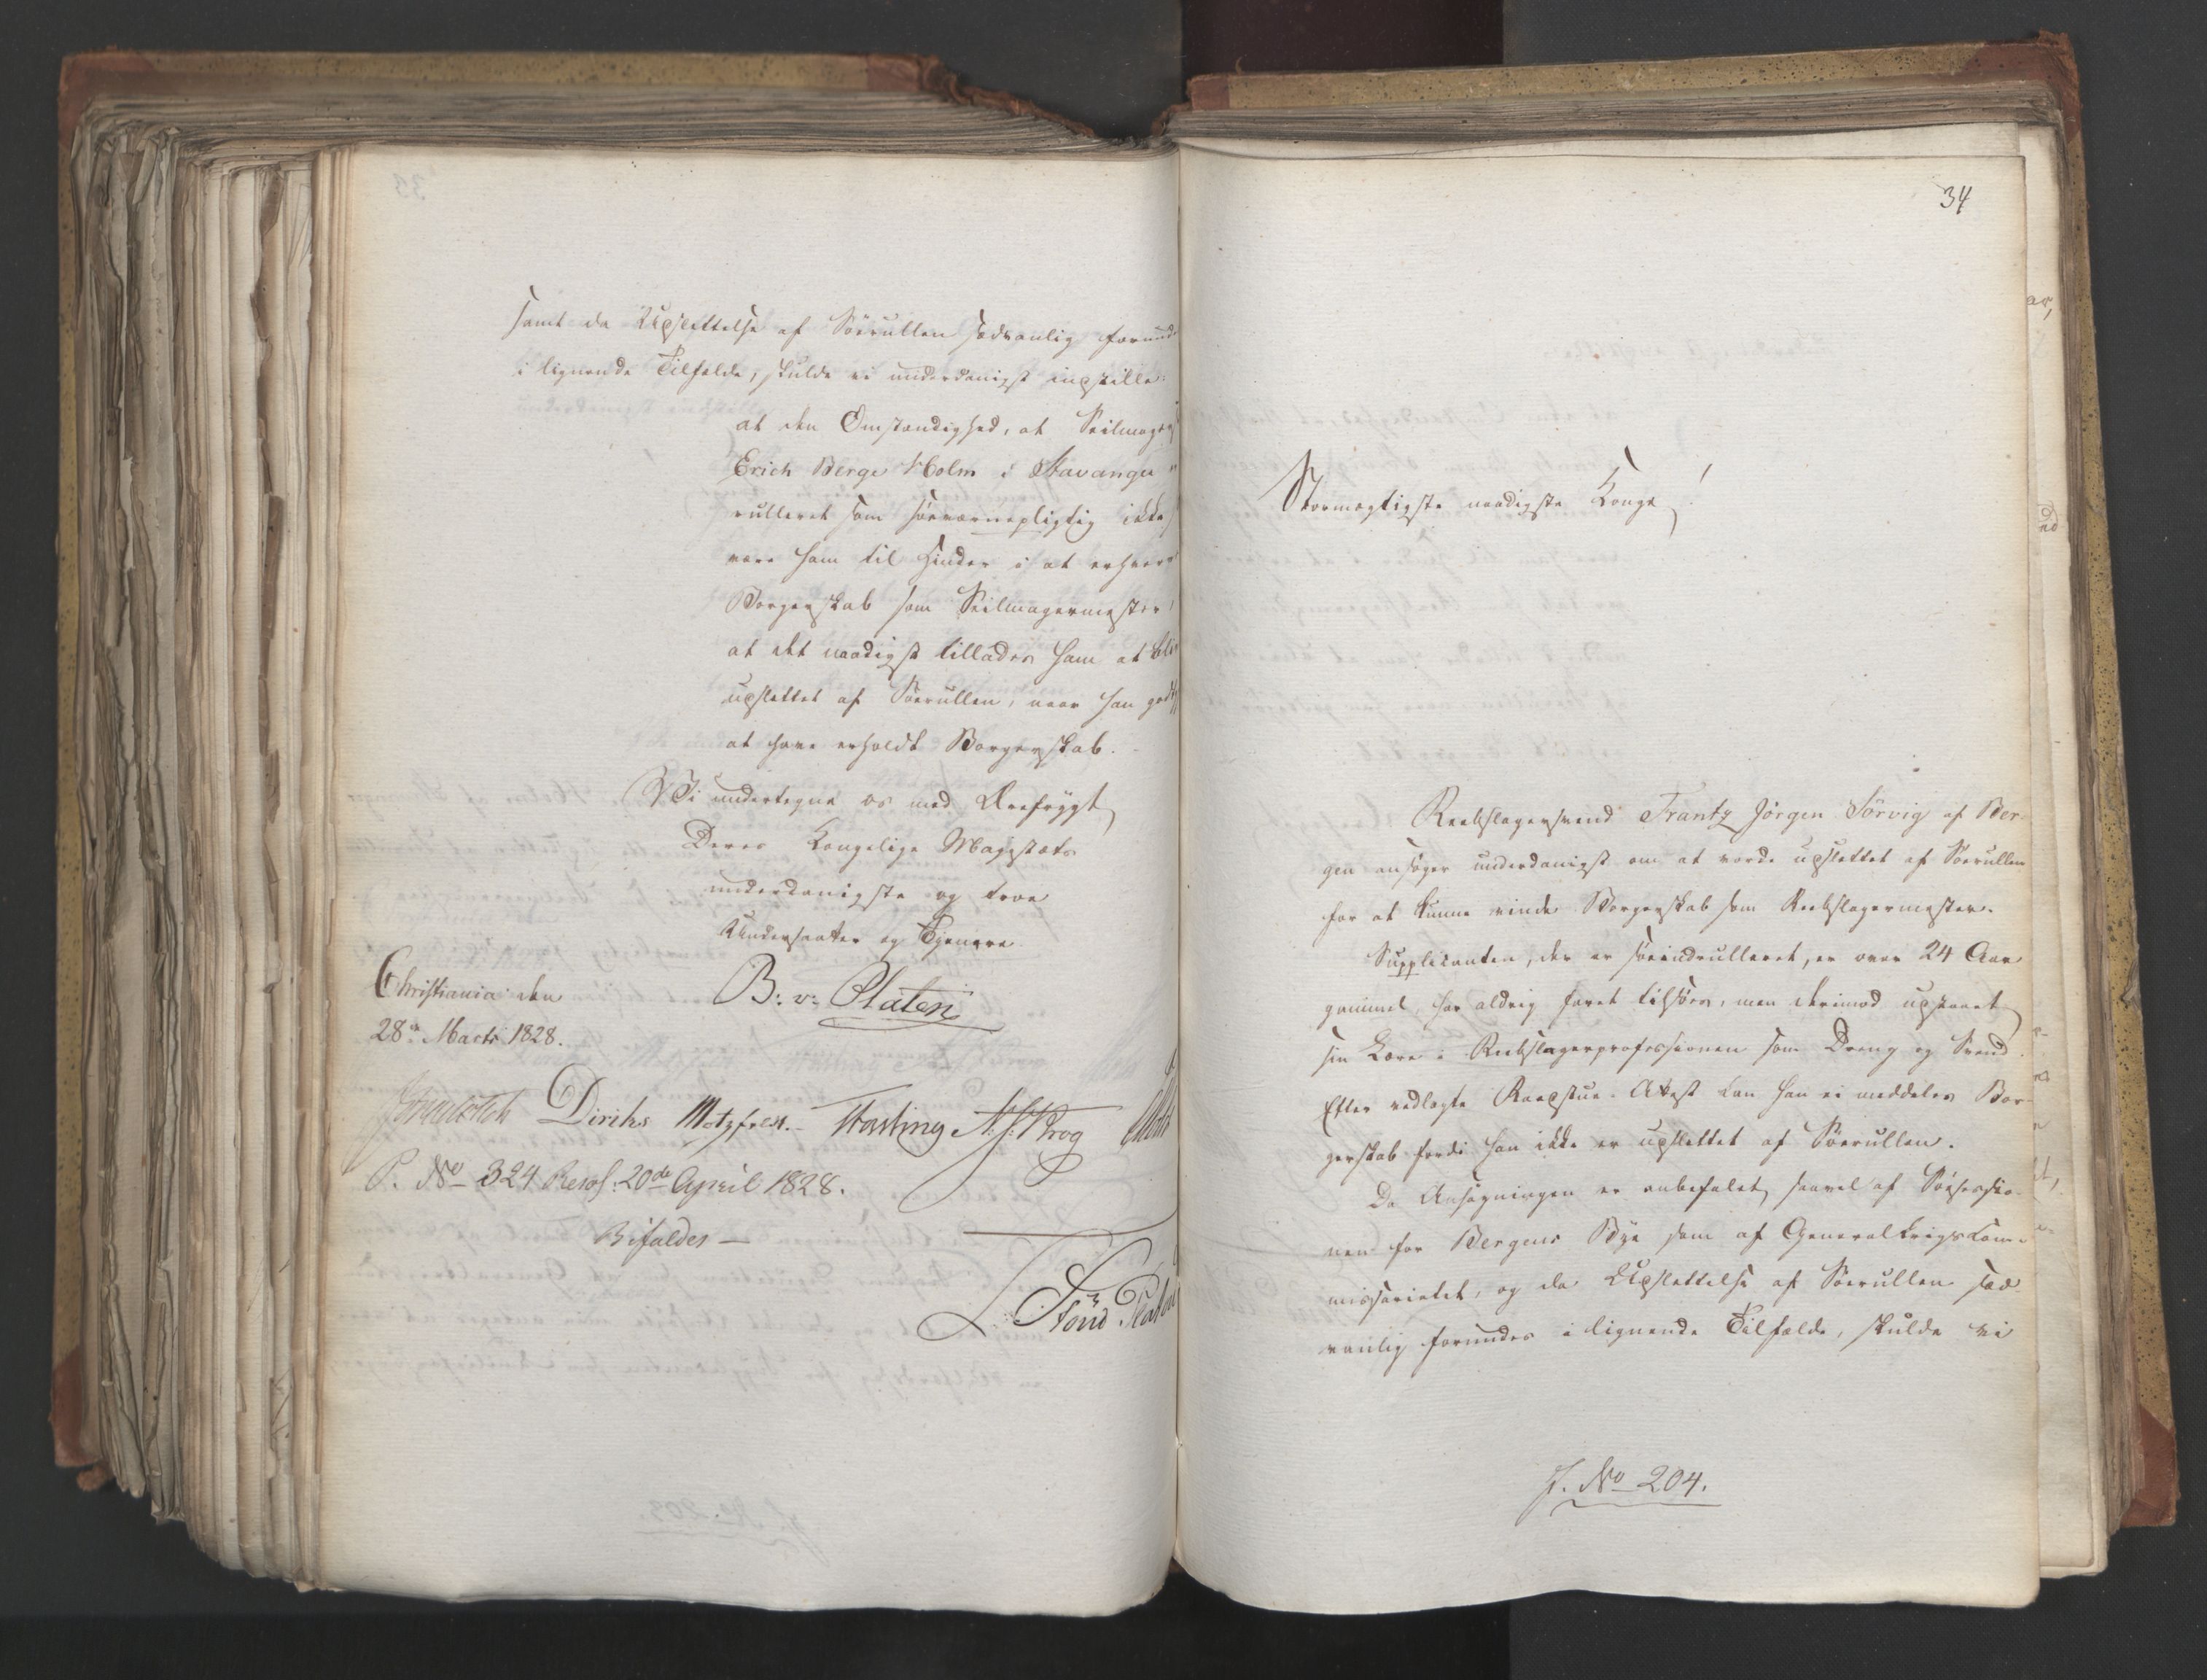 samt da Udslettelse af Söerullen sædvanlig forunde
i lignende Tilfælde, skulde vi underdanigst indstille:
at den Omstændighed, at Seilmager
Erich Berge Holm i Stavanger
rulleret som söeværnepligtig ikke
være ham til Hinder i at erhverve
Borgerskab som Seilmagermester,
at det naadigst tillades ham at bli
udslettet af Söerullen, naar han godt
at have erholdt Borgerskab.
Vi undertegne os med Ærefrygt
Deres Kongelige Majestæts
underdanigste og troe
Undersaatter og Tjenere
Christiania den
28de Marts 1828.
B: v: Platen
Diriks Motzfeldt. Fasting N: J: Krog
P. No 324 Resol: 20de April 1828.
Bifaldes —
34
Stormægtigste naadigste Konge!
Reebslagersvend Frantz Jörgen Sörvig af Ber-
gen ansöger underdanigst om at vorde udslettet af Söerullen
for at kunne vinde Borgerskab som Reebslagermester.
Supplicanten, der er söeindrulleret, er over 24 Aar
gammel, har aldrig faret tilsöes, men derimod udstaaet
sin Lære i Reebslagerprofessionen som Dreng og Svend.
Efter vedlagte Raadstue-Attest kan han ei meddeles Bor-
gerskab fordi han ikke er udslettet af Söerullen.
Da Ansögningen er anbefalet, saavel af Söesessio-
nen for Bergens Bye som af Generalkrigskom-
missariatet, og da Udslettelse af Söerullen sæd-
vanlig forundes i lignende Tilfælde, skulde vi
J. No 204.